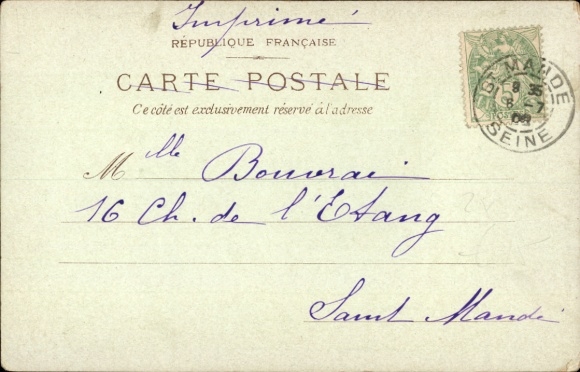 Imprimé
RÉPUBLIQUE FRANÇAISE
CARTE POSTALE
Ce côté est exclusivement réservé à l'adresse
ST MANDÉ
8 35
6 - 7
03
SEINE
Mlle Bouvrai
16 Ch. de l'Etang
Saint Mandé